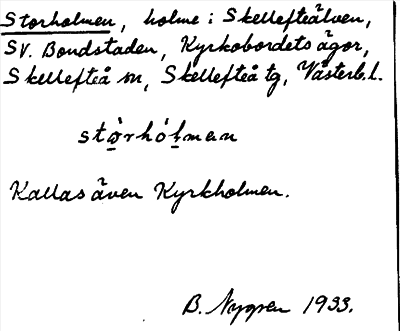 Storholmen, holme i Skellefteälven,
SV. Bondstaden, Kyrkobordets ägor,
Skellefteå sn, Skellefteå tg, Västerb. l.
stò̱rhólmen
Kallas även Kyrkholmen.
B. Nygren 1933.